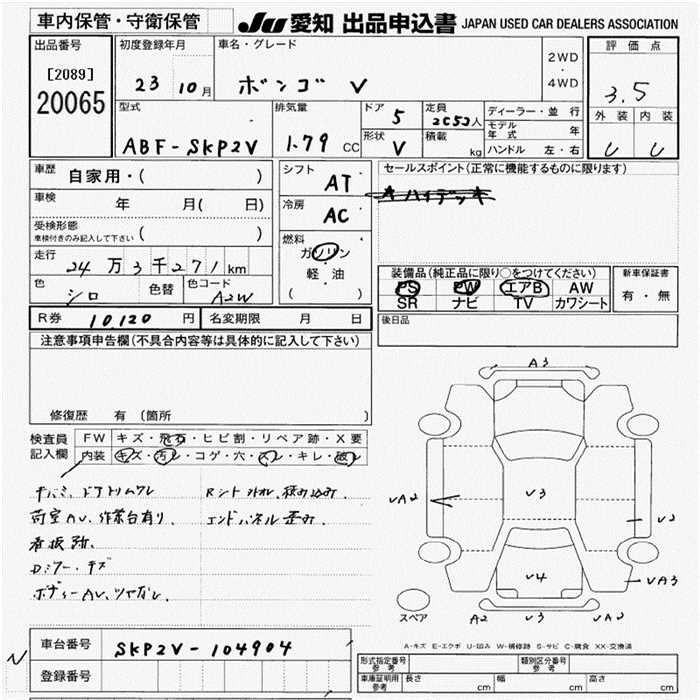 車内保管・守衛保管
JU 愛知 出品申込書 JAPAN USED CAR DEALERS ASSOCIATION
出品番号
[2089]
20065
初度登録年月
23 10月
車名・グレード
ボンゴ V
2WD
・
4WD
評価点
3.5
外装 内装
U U
型式
ABF-SKP2V
排気量
1.79 CC
ドア 5
形状 V
定員 2C52人
積載 kg
ディーラー・並行
モデル年式 年
ハンドル 左・右
車歴 自家用・( )
車検 年 月( 日)
受検形態
車検付きのみ記入して下さい ( )
走行
24万3千271km
色 シロ
色替
色コード A2W
シフト AT
冷房 AC
燃料
ガソリン
・
軽・油
( )
セールスポイント(正常に機能するものに限ります)
ハイデッキ
装備品(純正品に限り○をつけてください)
PS PW エアB AW
SR ナビ TV カワシート
新車保証書
有・無
R券 10,120 円
名変期限 月 日
後日品
注意事項申告欄(不具合内容等は具体的に記入して下さい)
修復歴 有 (箇所 )
検査員記入欄
FW キズ・飛石・ヒビ割・リペア跡・X要
内装 キズ・汚レ・コゲ・穴・スレ・キレ・破レ
荷室AU、作業台有り、
看板跡、
Dミラー・キズ
ボディーAU、ツヤボレ
エンドパネル歪み、
A3
UA2
U3
U2
U4
UA3
スペア
A2 U3 UA2
A-キズ E-エクボ U-凹み W-補修跡 S-サビ C-腐食 XX-交換済
車台番号 SKP2V-104904
登録番号
N
形式指定番号 参考
類別区分番号 参考
車庫証明用 参考
長さ cm
幅 cm
高さ cm